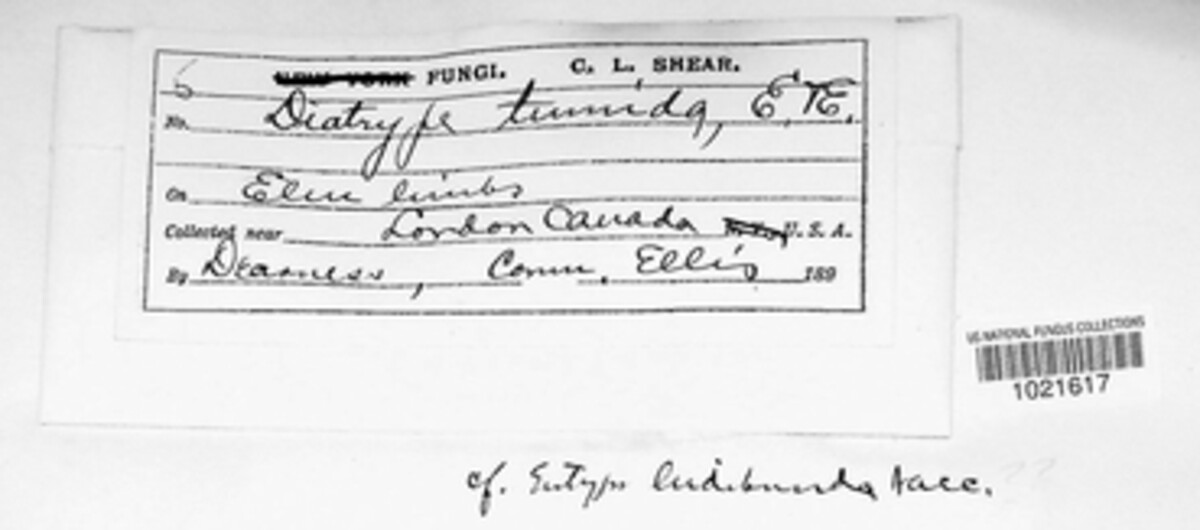 NEW YORK FUNGI. C. L. SHEAR.
No. Diatrype tumida, E. & E.
On Elm limbs
Collected near London Canada U. S. A.
By Dearness, Comm. Ellis 189
US NATIONAL FUNGUS COLLECTIONS
1021617
cf. Eutypa ludibunda Sacc.